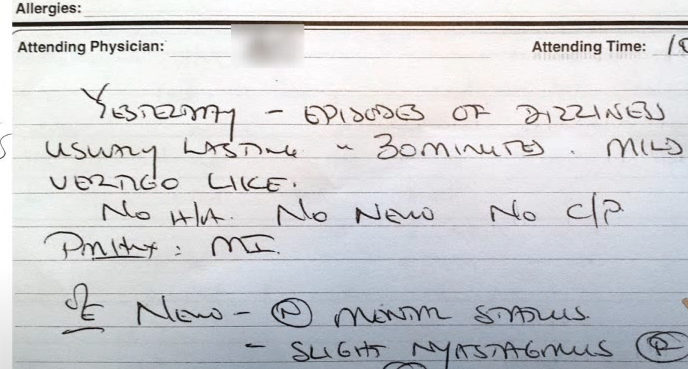 Allergies:
Attending Physician: Attending Time:
YESTERDAY - EPISODES OF DIZZINESS
USUALLY LASTING ~ 30 MINUTES. MILD
VERTIGO LIKE.
No H/A. No NEURO No C/P.
PMHx: MI.
O/E NEURO - (N) MENTAL STATUS
- SLIGHT NYASTAGMUS (R)